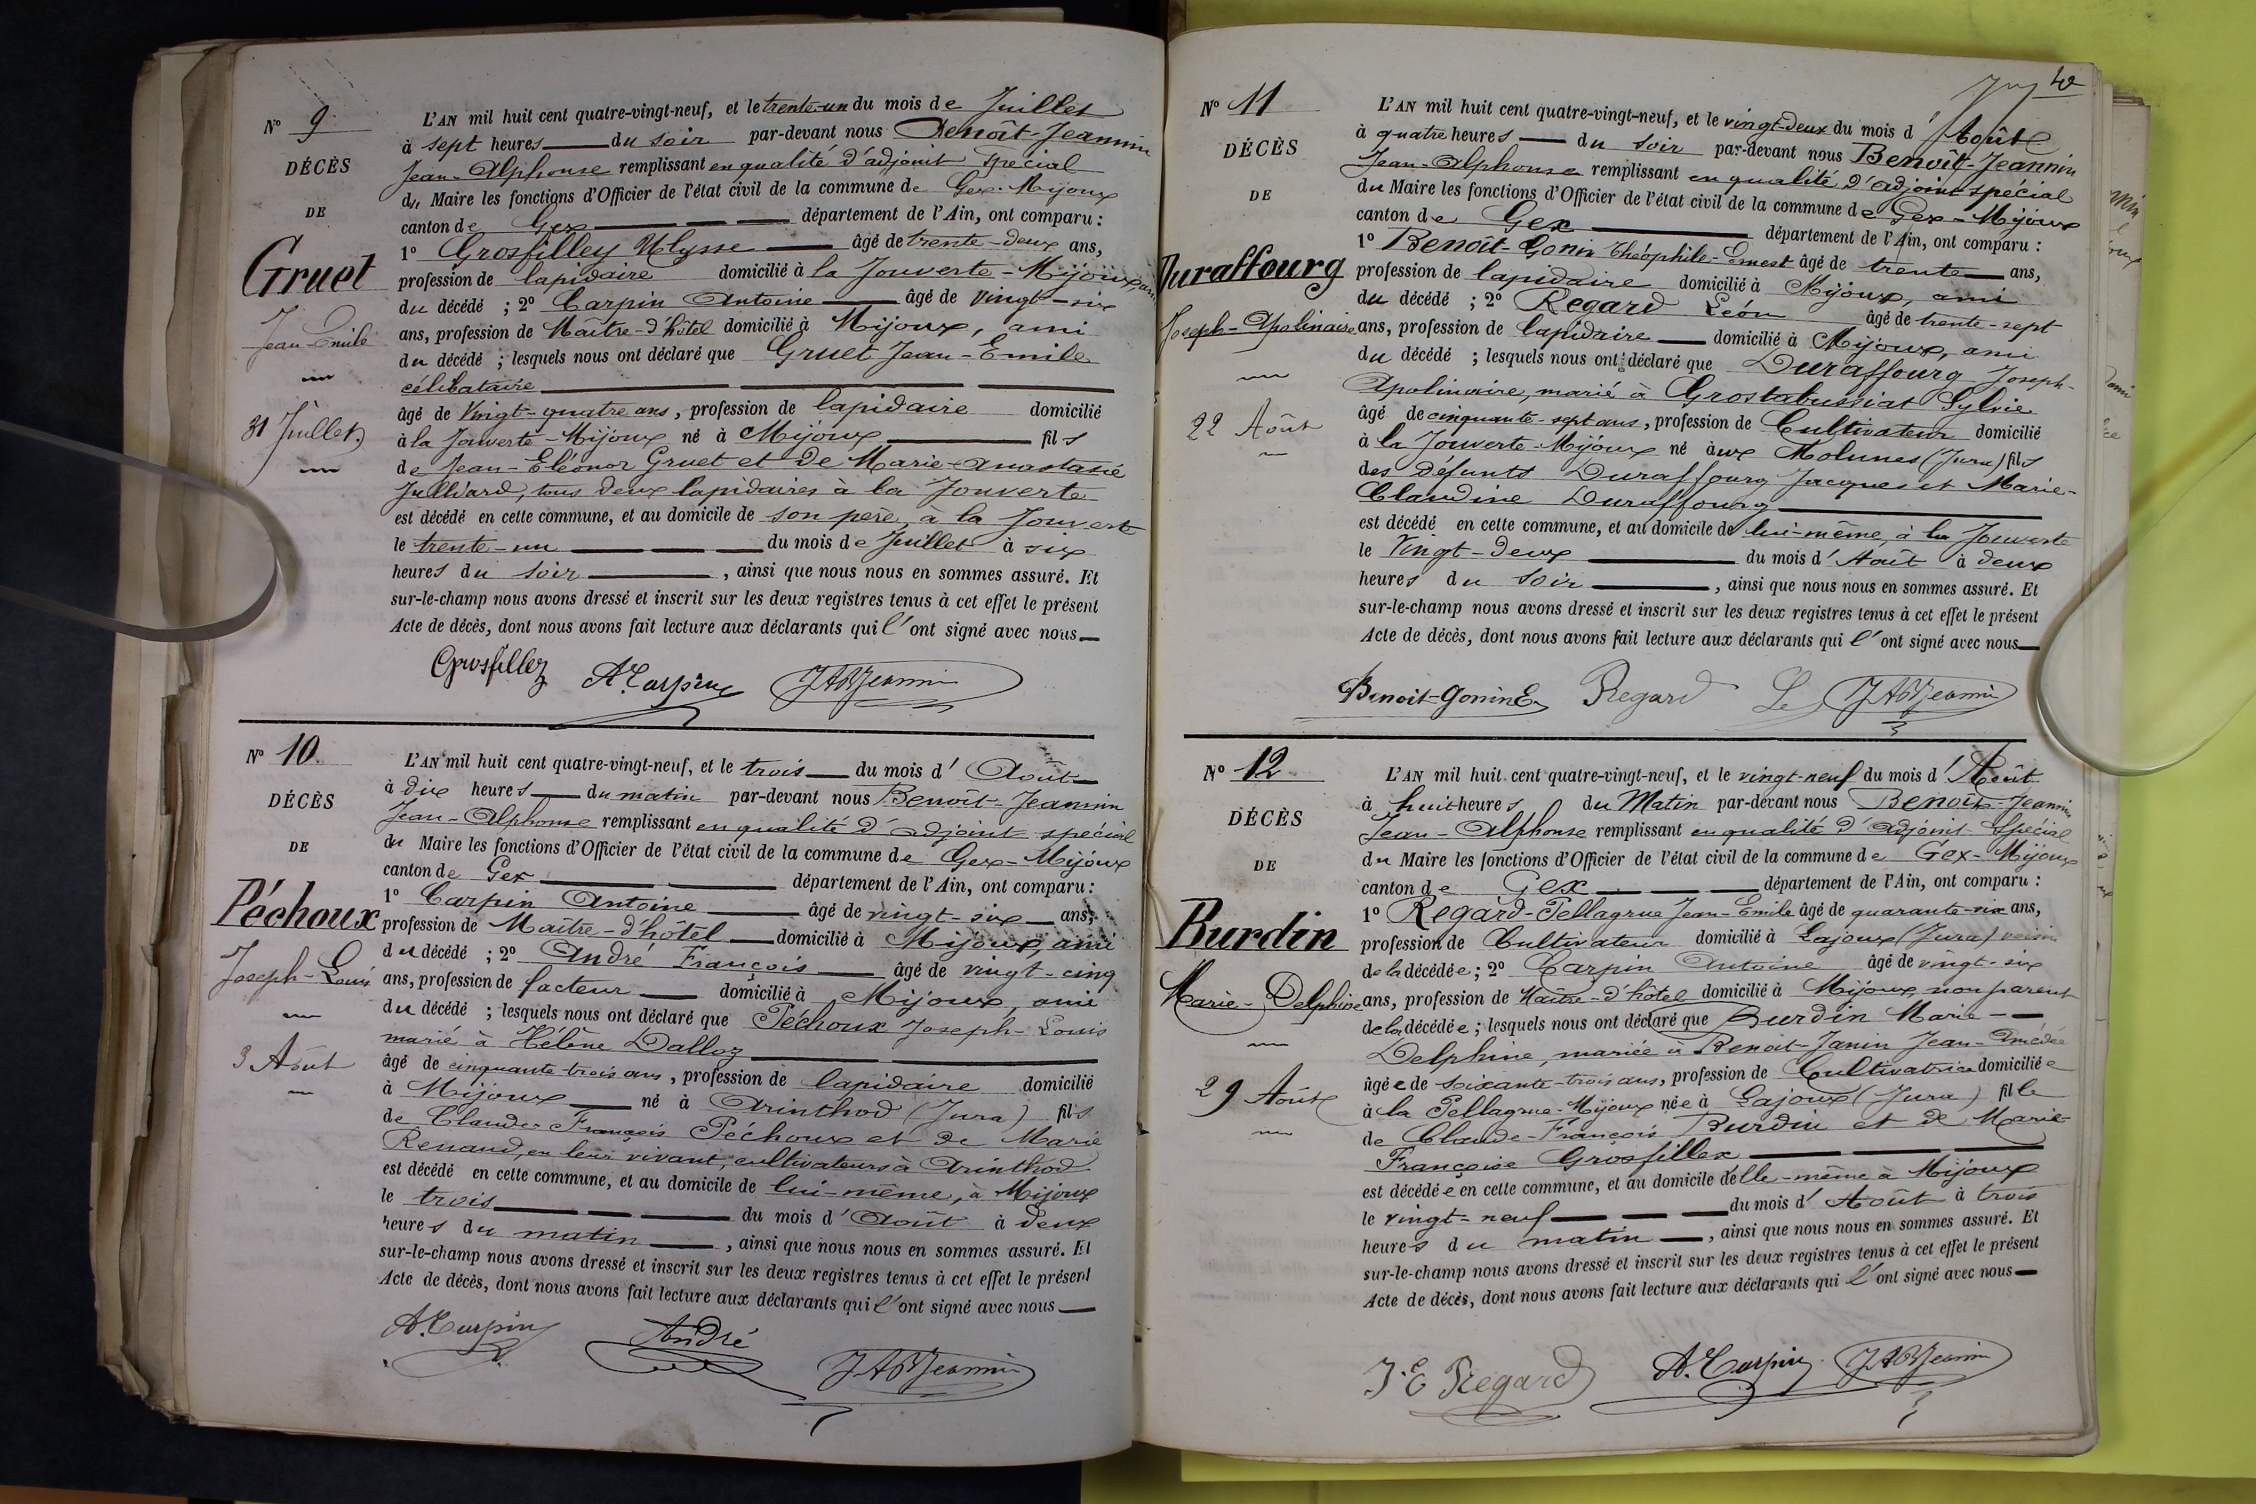 N° 9
DÉCÈS
DE
Gruet
Jean-Emile
31 Juillet
L'AN mil huit cent quatre-vingt-neuf, et le trente-un du mois de Juillet
à sept heures du soir par-devant nous Benoît-Jeannin
Jean-Alphonse remplissant en qualité d'adjoint spécial
du Maire les fonctions d'Officier de l'état civil de la commune de Gex-Mijoux
canton de Gex département de l'Ain, ont comparu :
1° Grosfilley Ulysse âgé de trente-deux ans,
profession de lapidaire domicilié à la Jouverte-Mijoux, ami
du décédé ; 2° Carpin Antoine âgé de vingt-six
ans, profession de Maître-d'hôtel domicilié à Mijoux, ami
du décédé ; lesquels nous ont déclaré que Gruet Jean-Emile
célibataire
âgé de Vingt-quatre ans, profession de lapidaire domicilié
à la Jouverte-Mijoux né à Mijoux fils
de Jean-Eléonor Gruet et de Marie-Anastasie
Julliard, tous deux lapidaires à la Jouverte
est décédé en cette commune, et au domicile de son père, à la Jouverte
le trente-un du mois de Juillet à six
heures du soir, ainsi que nous nous en sommes assuré. Et
sur-le-champ nous avons dressé et inscrit sur les deux registres tenus à cet effet le présent
Acte de décès, dont nous avons fait lecture aux déclarants qui l'ont signé avec nous
Grosfilley A. Carpin JABJeannin
N° 10
DÉCÈS
DE
Péchoux
Joseph-Louis
3 Août
L'AN mil huit cent quatre-vingt-neuf, et le trois du mois d'Août
à dix heures du matin par-devant nous Benoît-Jeannin
Jean-Alphonse remplissant en qualité d'adjoint spécial
du Maire les fonctions d'Officier de l'état civil de la commune de Gex-Mijoux
canton de Gex département de l'Ain, ont comparu :
1° Carpin Antoine âgé de vingt-six ans,
profession de Maître-d'hôtel domicilié à Mijoux, ami
du décédé ; 2° André François âgé de vingt-cinq
ans, profession de facteur domicilié à Mijoux, ami
du décédé ; lesquels nous ont déclaré que Péchoux Joseph-Louis
marié à Hélène Dalloz
âgé de cinquante-trois ans, profession de lapidaire domicilié
à Mijoux né à Arinthod (Jura) fils
de Claude François Péchoux et de Marie
Renaud, en leur vivant, cultivateurs à Arinthod
est décédé en cette commune, et au domicile de lui-même, à Mijoux
le trois du mois d'Août à deux
heures du matin, ainsi que nous nous en sommes assuré. Et
sur-le-champ nous avons dressé et inscrit sur les deux registres tenus à cet effet le présent
Acte de décès, dont nous avons fait lecture aux déclarants qui l'ont signé avec nous
A. Carpin André JABJeannin
40
N° 11
DÉCÈS
DE
Duraffourg
Joseph-Apolinaire
22 Août
L'AN mil huit cent quatre-vingt-neuf, et le vingt-deux du mois d'Août
à quatre heures du soir par-devant nous Benoît-Jeannin
Jean-Alphonse remplissant en qualité d'adjoint spécial
du Maire les fonctions d'Officier de l'état civil de la commune de Gex-Mijoux
canton de Gex département de l'Ain, ont comparu :
1° Benoît-Gonin Théophile-Ernest âgé de trente ans,
profession de lapidaire domicilié à Mijoux, ami
du décédé ; 2° Regard Léon âgé de trente-sept
ans, profession de lapidaire domicilié à Mijoux, ami
du décédé ; lesquels nous ont déclaré que Duraffourg Joseph-
Apolinaire, marié à Grostabussiat Sylvie
âgé de cinquante-sept ans, profession de Cultivateur domicilié
à la Jouverte-Mijoux né aux Molunes (Jura) fils
des défunts Duraffourg Jacques et Marie-
Claudine Duraffourg
est décédé en cette commune, et au domicile de lui-même, à la Jouverte
le Vingt-deux du mois d'Août à deux
heures du soir, ainsi que nous nous en sommes assuré. Et
sur-le-champ nous avons dressé et inscrit sur les deux registres tenus à cet effet le présent
Acte de décès, dont nous avons fait lecture aux déclarants qui l'ont signé avec nous
Benoit-Gonin E. Regard Le JABJeannin
N° 12
DÉCÈS
DE
Burdin
Marie-Delphine
29 Août
L'AN mil huit cent quatre-vingt-neuf, et le vingt-neuf du mois d'Août
à huit heures du Matin par-devant nous Benoît-Jeannin
Jean-Alphonse remplissant en qualité d'adjoint Spécial
du Maire les fonctions d'Officier de l'état civil de la commune de Gex-Mijoux
canton de Gex département de l'Ain, ont comparu :
1° Regard-Pellagrue Jean-Emile âgé de quarante-six ans,
profession de Cultivateur domicilié à Lajoux (Jura) voisin
de la décédée ; 2° Carpin Antoine âgé de vingt-six
ans, profession de Maître-d'hôtel domicilié à Mijoux, non parent
de la décédée ; lesquels nous ont déclaré que Burdin Marie-
Delphine, mariée à Benoit-Janin Jean-Amédée
âgée de soixante-trois ans, profession de Cultivatrice domiciliée
à la Pellagrue-Mijoux née à Lajoux (Jura) fille
de Claude-François Burdin et de Marie-
Françoise Grosfillex
est décédée en cette commune, et au domicile d'elle-même à Mijoux
le vingt-neuf du mois d'Août à trois
heures du matin, ainsi que nous nous en sommes assuré. Et
sur-le-champ nous avons dressé et inscrit sur les deux registres tenus à cet effet le présent
Acte de décès, dont nous avons fait lecture aux déclarants qui l'ont signé avec nous
J. E Regard A. Carpin JABJeannin